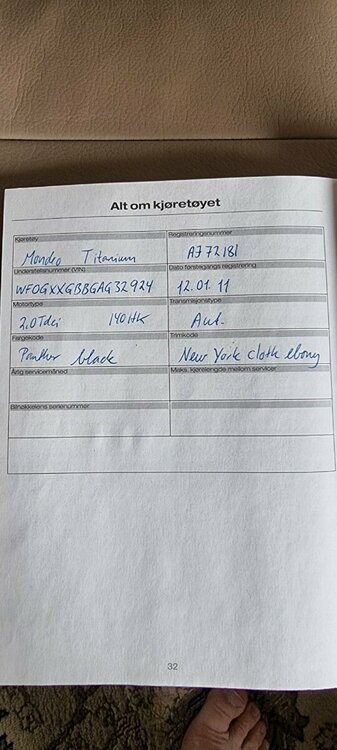 Alt om kjøretøyet
Kjøretøy
Registreringsnummer
Mondeo Titanium
AJ 72181
Understellsnummer (VIN)
Dato førstegangs registrering
WF0GXXGBBGAG32924
12.01.11
Motortype
Transmisjonstype
2,0Tdci 140Hk
Aut.
Fargekode
Trimkode
Panther black
New York cloth ebony
Årlig servicemåned
Maks. kjørelengde mellom servicer
Bilnøkkelens serienummer
32